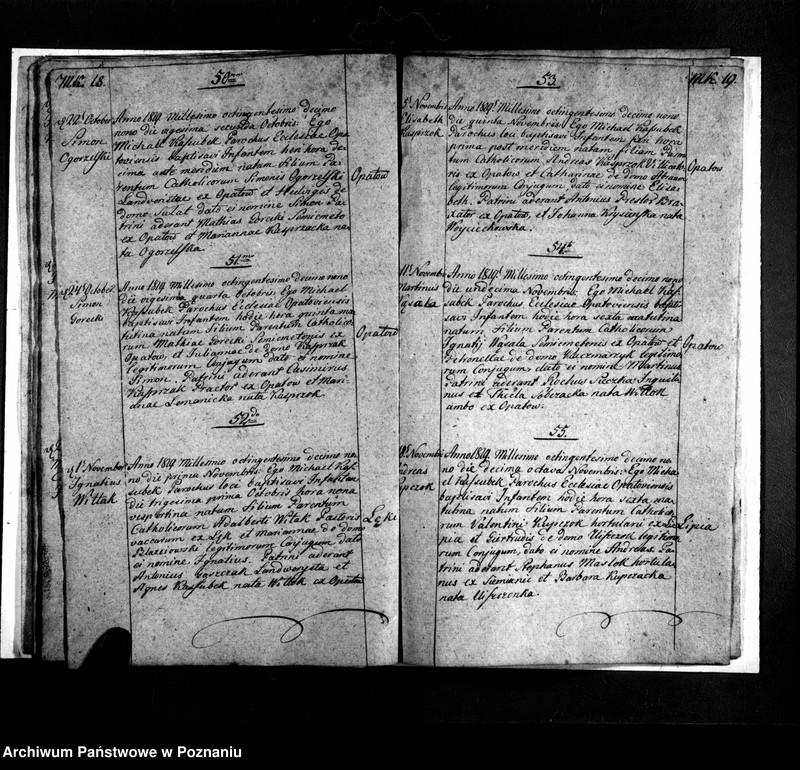 MK. 18.
50mm
d 22 October
Simon
Ogorzelski
Anno 1819 Millesimo octingentesimo decimo
nono die vigesima secunda Octobris: Ego
Michael Kassubek Parochus Ecclesiae Opa
toviensis baptisavi Infantem heri hora de
cima ante meridiem natum Filium Pa-
rentum Catholicorum Simonis Ogorzelski
Landweritae ex Opatow et Hedviges de
domo Sulat dato ei nomine Simon Pa-
trini aderant Mathias Gorecki Semicmeto
ex Opatow et Mariannae Kasprzacka na-
ta Ogorzelska
Opatow
51mo
d 24 October
Simon
Gorecki
Anno 1819 Millesimo octingentesimo decimo nono
die vigesima quarta Octobris: Ego Michael
Kassubek Parochus Ecclesiae Opatoviensis
baptisavi Infantem hodie hora quinta ma
tutina natum Filium Parentum Catholico
rum Mathiae Gorecki Semicmetonis ex
Opatow, et Juliannae de domo Kasprzak
legitimorum Conjugum dato ei nomine
Simon. Patrini aderant Casimirus
Kasprzak ex Opatow et Mari-
annae Lemanicka nata Kasprzok
Opatow
52do
d 1 November
Ignatius
Witlak
Anno 1819 Millesimo octingentesimo decimo no
no die prima Novembris: Ego Michael Kas
subek Parochus loci baptisavi Infantem
die trigesima prima Octobris hora nona
vespertina natum Filium Parentum
Catholicorum Adalberti Witlak Pastoris
vaccarum ex Lęk et Mariannae de domo
legitimorum Conjugum dato
ei nomine Ignatius. Patrini aderant
Antonius Garczak Landwerysta et
Agnes Kassubek nata Witlok ex Opatow
Lęki
MK. 19.
53.
5 Novembris
Elisabeth
Kasprzok
Anno 1819 Millesimo octingentesimo decimo nono
die quinta Novembris: Ego Michael Kassubek
Parochus loci baptisavi Infantem heri hora
prima post meridiem natam filiam Paren
tum Catholicorum Andreas Kasprzok
ex Opatow et Catharinae de domo
legitimorum Conjugum dato ei nomine Elisa-
beth. Patrini aderant Antonius Prester Bra-
xator ex Opatow, et Johanna Krysinska nata
Woyciechowska.
Opatow
54ta
11 Novembr
Martinus
Wasala
Anno 1819 Millesimo octingentesimo decimo nono
die undecima Novembris: Ego Michael Kas
subek Parochus Ecclesiae Opatoviensis bapti
savi Infantem hodie hora sexta matutina
natum Filium Parentum Catholicorum
Ignatij Wasala Semicmetonis ex Opatow et
Petronellae de domo Kaczmarzyk legitimo
rum Conjugum, dato ei nomine Martinus
Patrini aderant Rochus Inquili-
nus et Thecla Sobczacka nata Witlok
ambo ex Opatow.
Opatow
55.
18 Novembr
Andreas
Kupczok
Anno 1819 Millesimo octingentesimo decimo no
no die decima octava Novembris: Ego Micha
el Kassubek Parochus Ecclesiae Opatoviensis
baptisavi Infantem hodie hora sexta ma-
tutina natum Filium Parentum Catholico
rum Valentini Kupczok hortulani ex Li
pia et Gertrudis de domo
rum Conjugum, dato ei nomine Andreas. Pa-
trini aderant Stephanus Maslok hortula-
nus ex Siemianic et Barbara Kupczacka
nata
Lipia
Archiwum Państwowe w Poznaniu